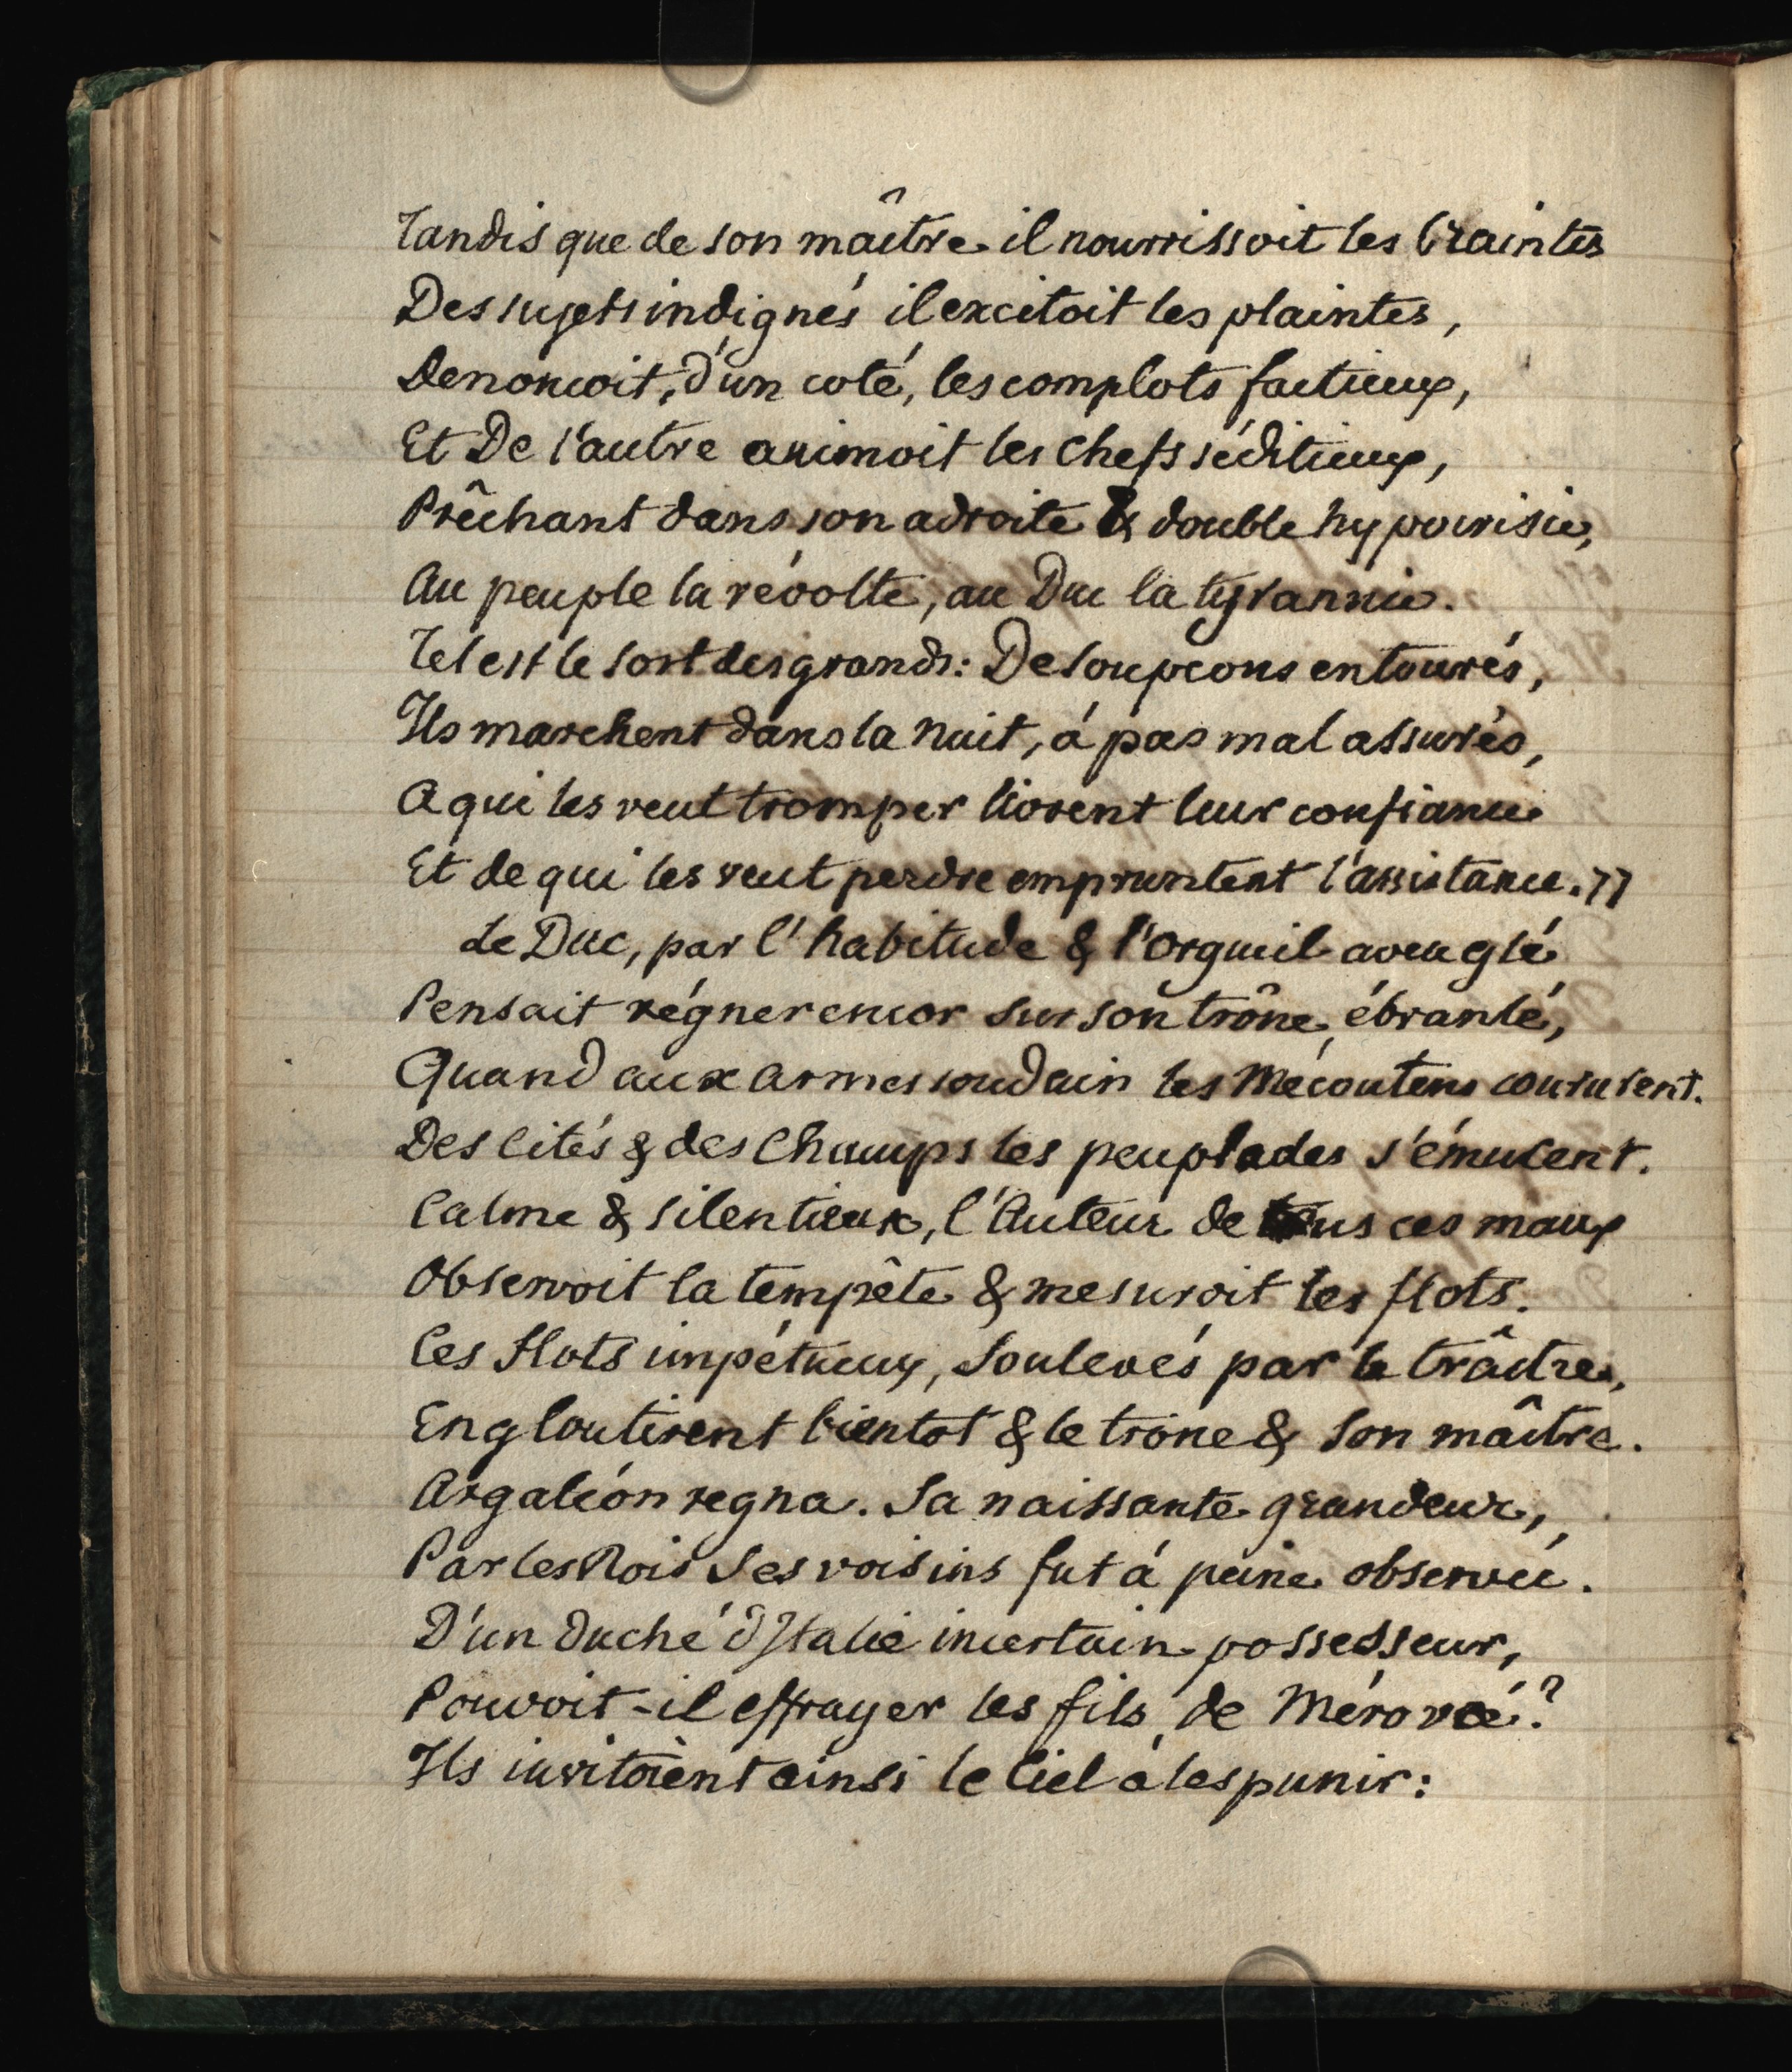 Tandis que de son maître il nourrissoit les Craintes
Des sujets indignés il excitoit les plaintes,
Denoncoit, d'un coté, les complots factieux,
Et De l'autre animoit les Chefs séditieux,
Prêchant dans son adroite & double hypocrisie,
Au peuple la révolte, au Duc la tyrannie.
Tel est le sort des grands: De soupcons entourés,
Ils marchent dans la Nuit, à pas mal assurés,
A qui les veut tromper livrent leur confiance
Et de qui les veut perdre empruntent l'assistance. 77
Le Duc, par l'habitude & l'Orgueil aveuglé
Pensait régner encor sur son trône ébranlé,
Quand aux armes soudain les Mécontens coururent.
Des Cités & des Champs les peuplades s'émurent.
Calme & silentieux, l'Auteur de tous ces maux
Observoit la tempête & mesuroit les flots.
Ces flots impétueux, Soulevés par le traître,
Engloutirent bientot & le trône & Son maître.
Argaléon regna. Sa naissante grandeur,
Par les Rois Ses voisins fut à peine observée.
D'un Duché d'Italie incertain possesseur,
Pouvoit-il effrayer les fils de Mérovée?
Ils invitoient ainsi le Ciel à les punir: